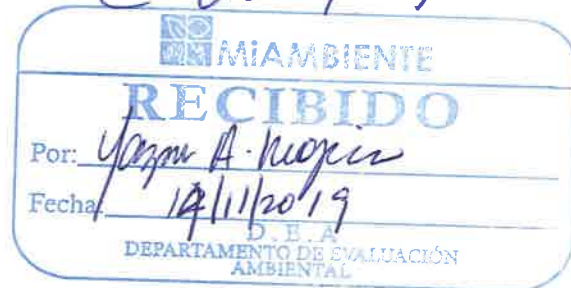 MiAMBIENTE
RECIBIDO
Por: A.
Fecha 14/11/2019
D.E.A
DEPARTAMENTO DE EVALUACIÓN
AMBIENTAL